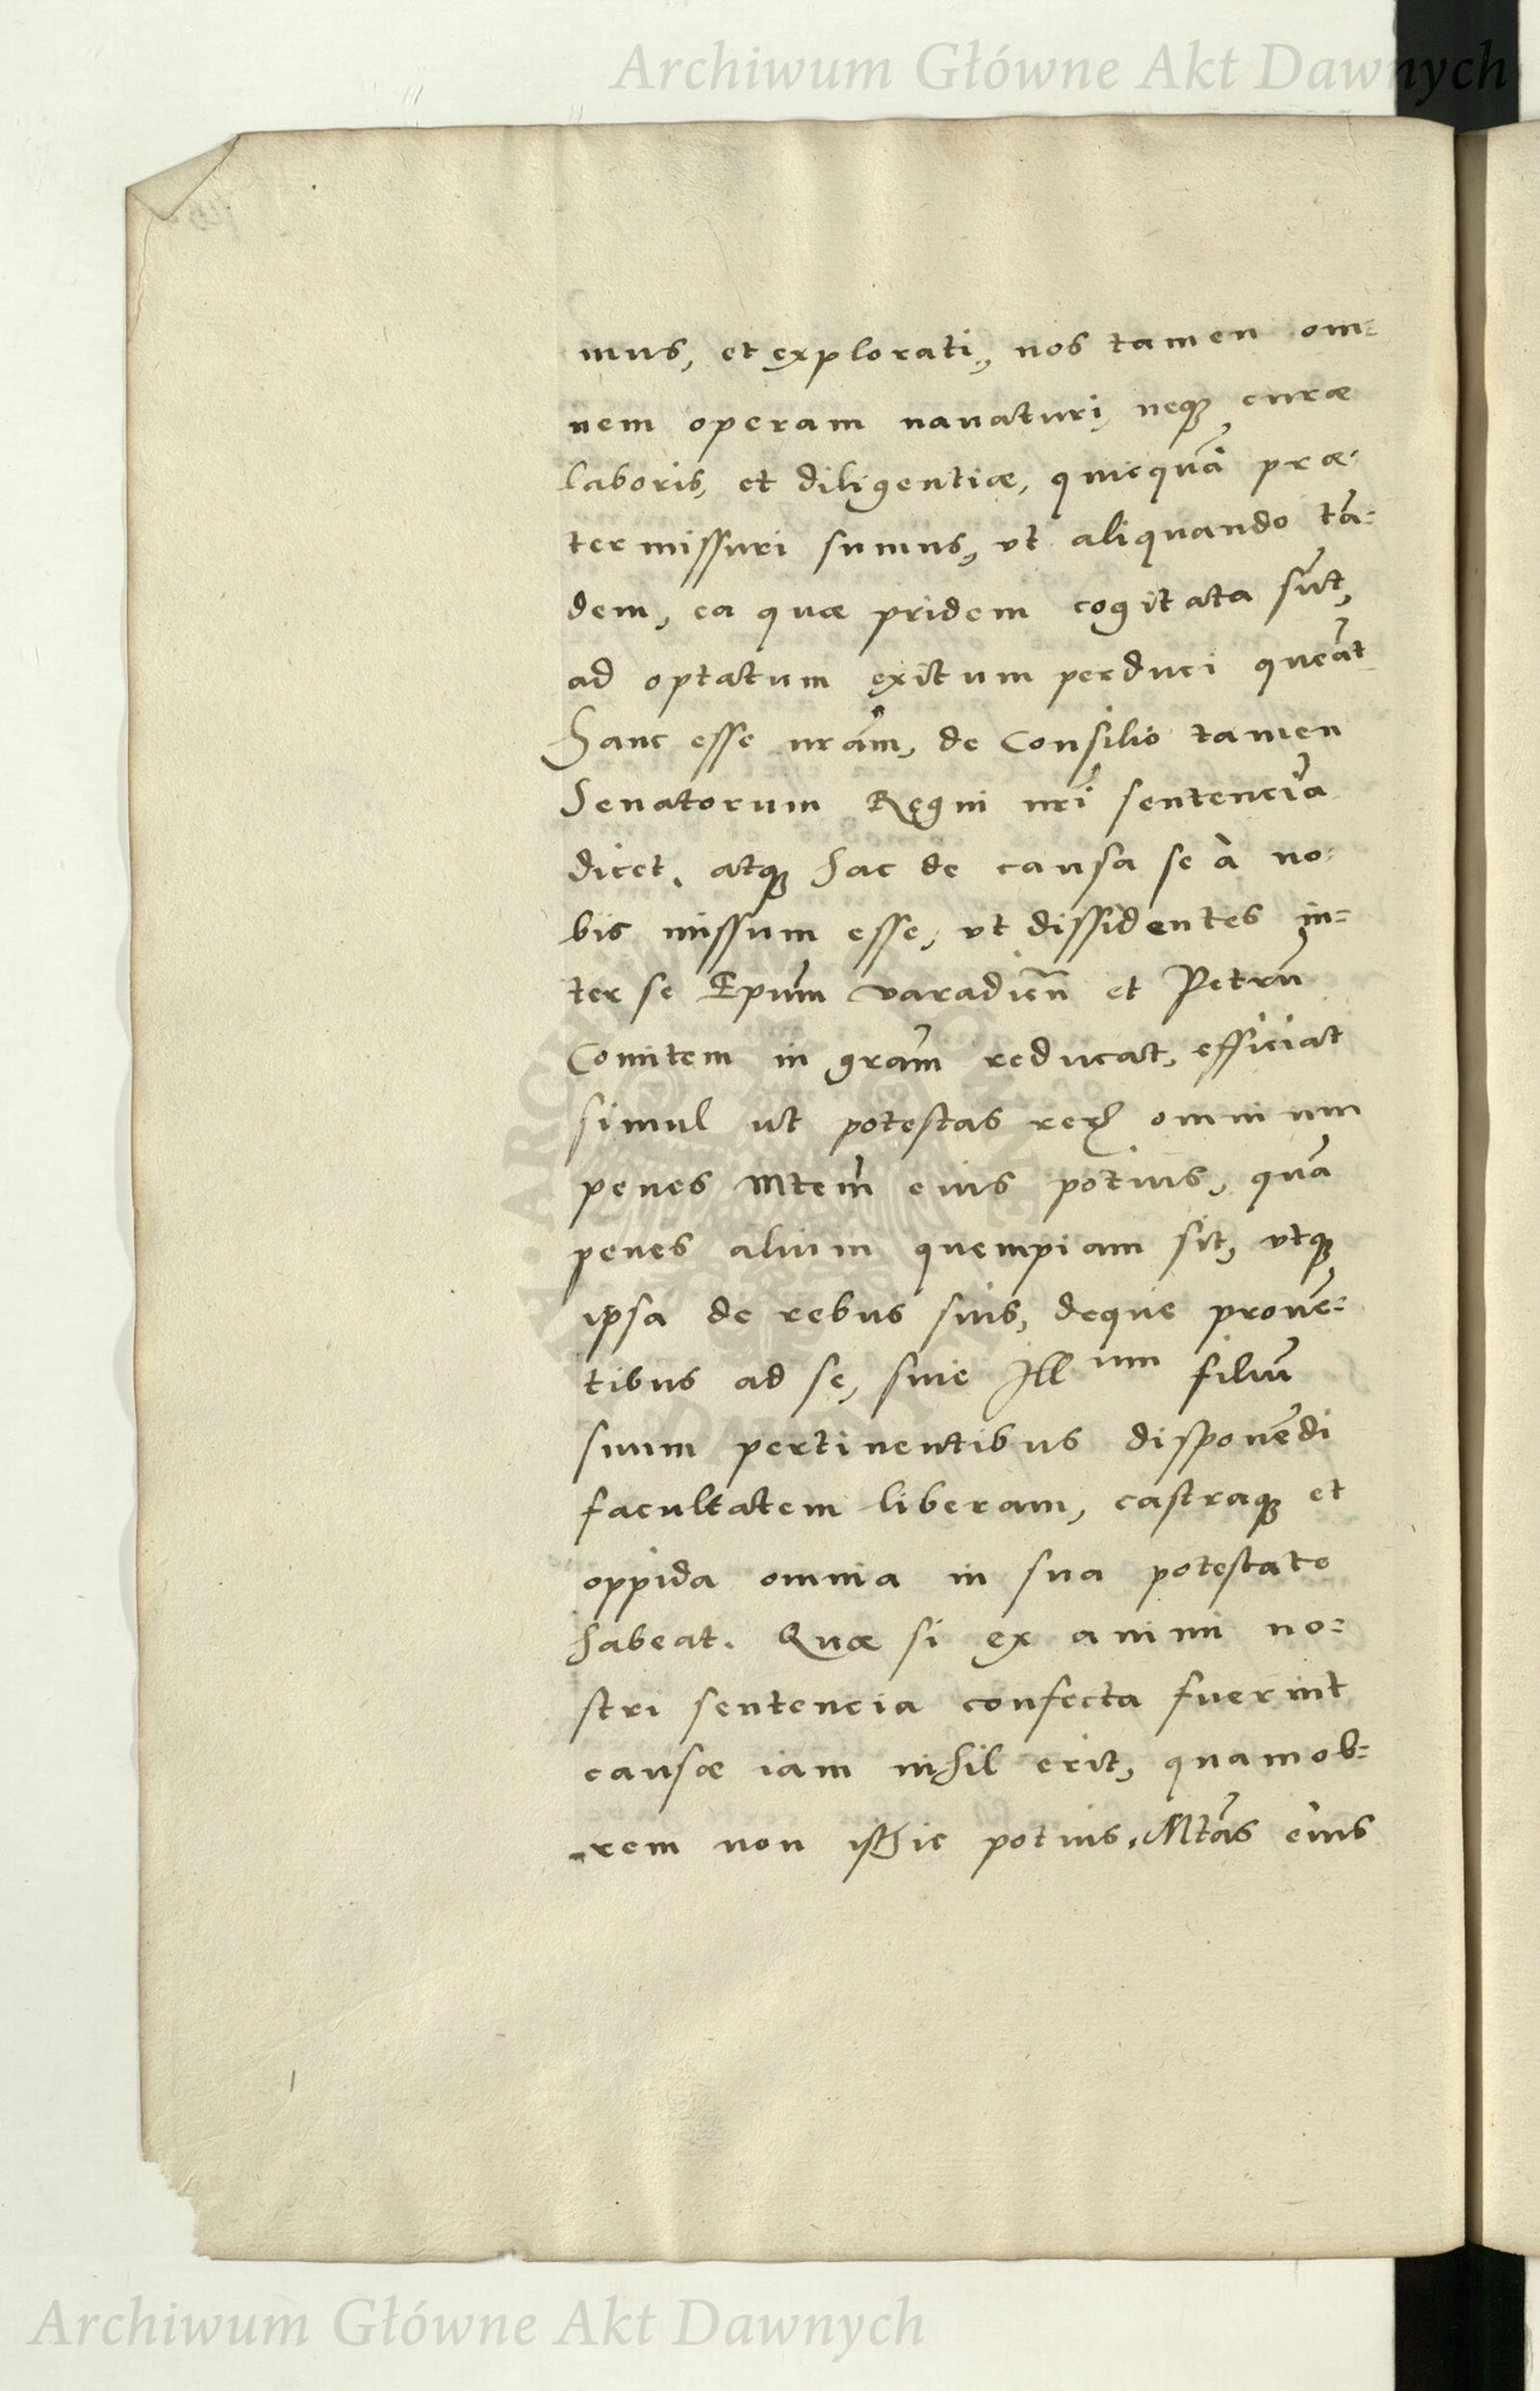 Archiwum Główne Akt Dawnych
mus, et explorati, nos tamen om=
nem operam nauaturi, neqȝ curæ
laboris, et diligentiæ, quicquā præ=
termissuri sumus, vt aliquando tā=
dem, ea quæ pridem cogitata sūt,
ad optatum exitum perduci queāt
Hanc esse nrām, de Consilio tamen
Senatorum Regni nrī sentenciā
dicet, atqȝ hac de causa se à no=
bis missum esse, vt dissidentes in=
ter se Epūm varadieñ et Petrū
Comitem in grām reducat, efficiat
simul ut potestas rerꝝ omnium
penes Mtem̄ eius potius, quā
penes alium quempiam sit, vtqȝ
ipsa de rebus suis, deque prouē=
tibus ad se, siue Ill um filiū
suum pertinentibus disponēdi
facultatem liberam, castraqȝ et
oppida omnia in sua potestate
habeat. Quæ si ex animi no=
stri sentencia confecta fuerint
causæ iam nihil erit, quamob=
rem non isthic potius, Mtās eius
Archiwum Główne Akt Dawnych